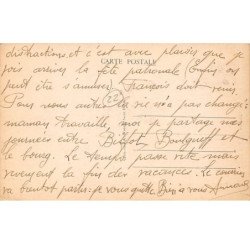 distractions, et c'est avec plaisir que je
CARTE POSTALE
vois arriver la fête patronale Enfin on
peut être s'amuser. François doit venir
22
Pour nous autres la vie n'a pas changé
maman travaille, moi je partage mes
journées entre
et
le bourg. Le temps passe vite, mais
vivement la fin des vacances. Le courrier
va bientot partir. je vous quitte. Bien à vous